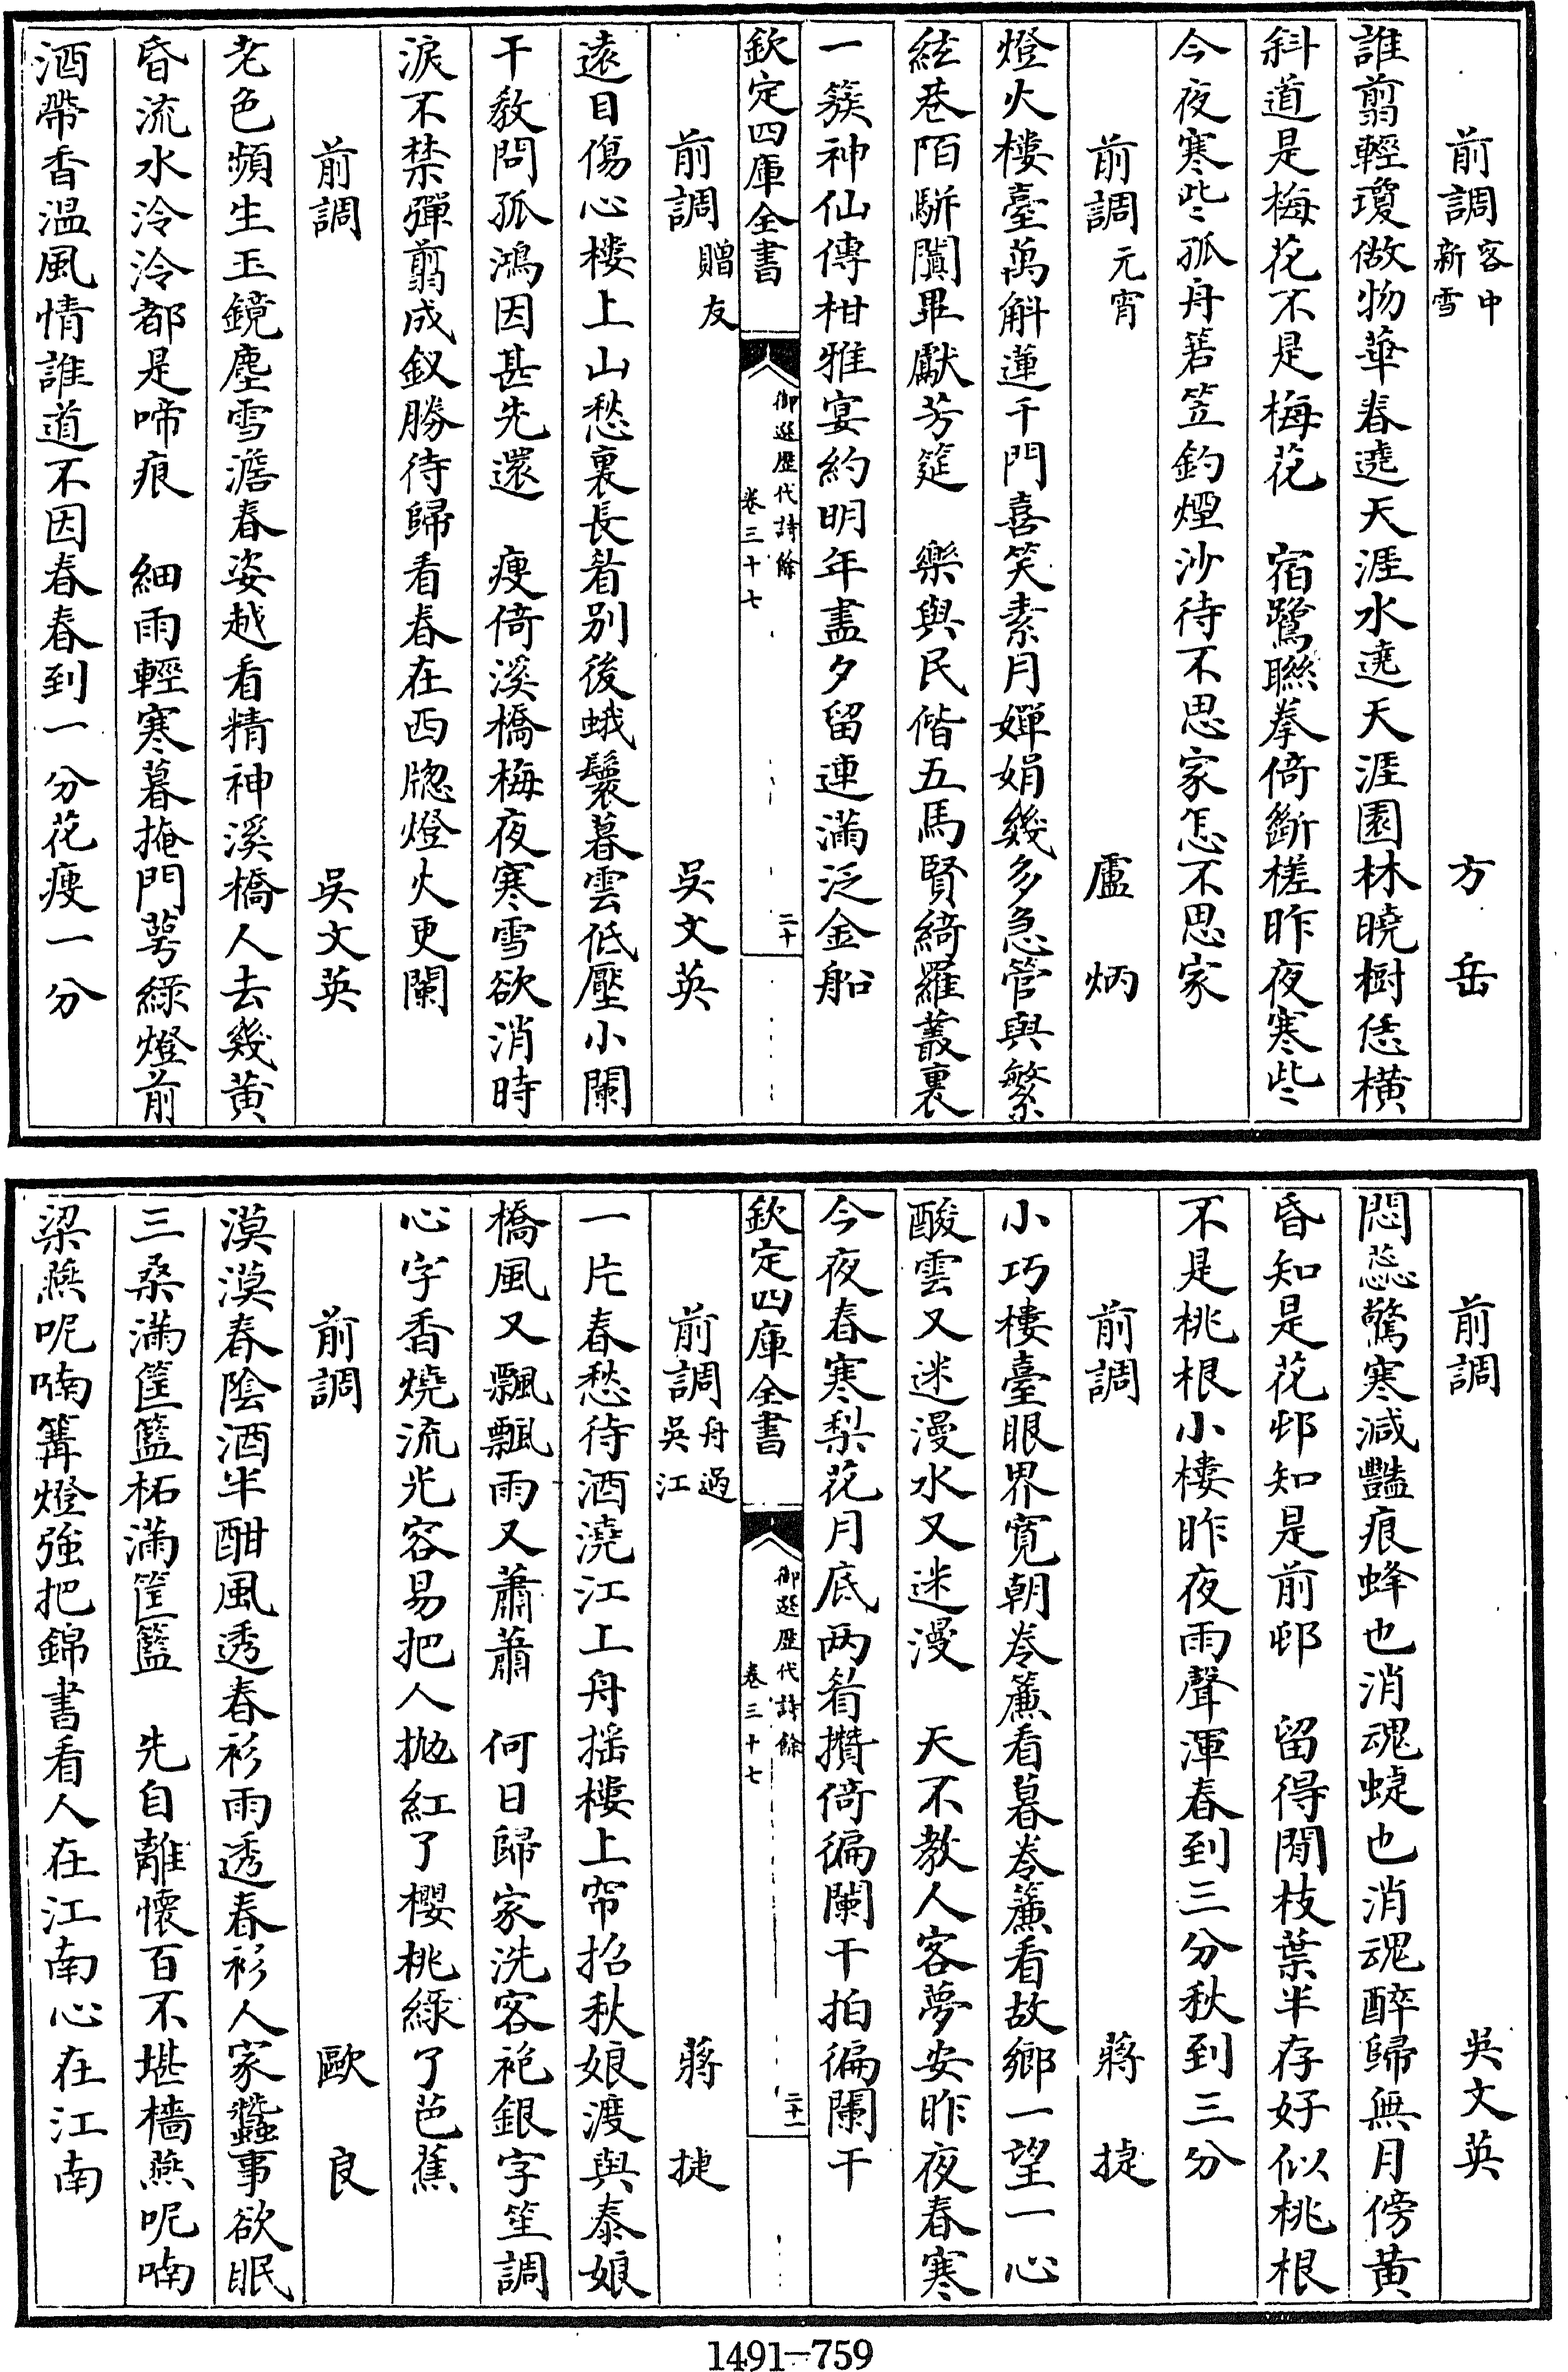 前調客中新雪　方岳
誰翦輕瓊做物華春遶天涯水遶天涯園林曉樹恁橫
斜道是梅花不是梅花　宿鷺聯拳倚斷槎昨夜寒些
今夜寒些孤舟箬笠釣煙沙待不思家怎不思家
前調元宵　盧炳
燈火樓臺萬斛蓮千門喜笑素月嬋娟幾多急管與繁
絃巷陌駢闐畢獻芳筵　樂與民偕五馬賢綺羅叢裏
一簇神仙傳柑雅宴約明年盡夕留連滿泛金船
欽定四庫全書　御選歷代詩餘　卷三十七　二十
前調贈友　吳文英
遠目傷心樓上山愁裏長眉別後蛾鬟暮雲低壓小闌
干教問孤鴻因甚先還　瘦倚溪橋梅夜寒雪欲消時
淚不禁彈翦成釵勝待歸看春在西牕燈火更闌
前調　吳文英
老色頻生玉鏡塵雪澹春姿越看精神溪橋人去幾黃
昏流水泠泠都是啼痕　細雨輕寒暮掩門萼綠燈前
酒帶香溫風情誰道不因春春到一分花瘦一分
前調　吳文英
悶蕊驚寒減豔痕蜂也消魂蜨也消魂醉歸無月傍黃
昏知是花邨知是前邨　留得閒枝葉半存好似桃根
不是桃根小樓昨夜雨聲渾春到三分秋到三分
前調　蔣捷
小巧樓臺眼界寬朝卷簾看暮卷簾看故鄉一望一心
酸雲又迷漫水又迷漫　天不教人客夢安昨夜春寒
今夜春寒梨花月底两眉攢倚徧闌干拍徧闌干
欽定四庫全書　御選歷代詩餘　卷三十七　二十一
前調舟過吳江　蔣捷
一片春愁待酒澆江上舟搖樓上帘招秋娘渡與泰娘
橋風又飄飄雨又蕭蕭　何日歸家洗客袍銀字笙調
心字香燒流光容易把人拋紅了櫻桃綠了芭蕉
前調　歐良
漠漠春陰酒半酣風透春衫雨透春衫人家蠶事欲眠
三桑滿筐籃柘滿筐籃　先自離懷百不堪檣燕呢喃
梁燕呢喃篝燈強把錦書看人在江南心在江南
1491-759